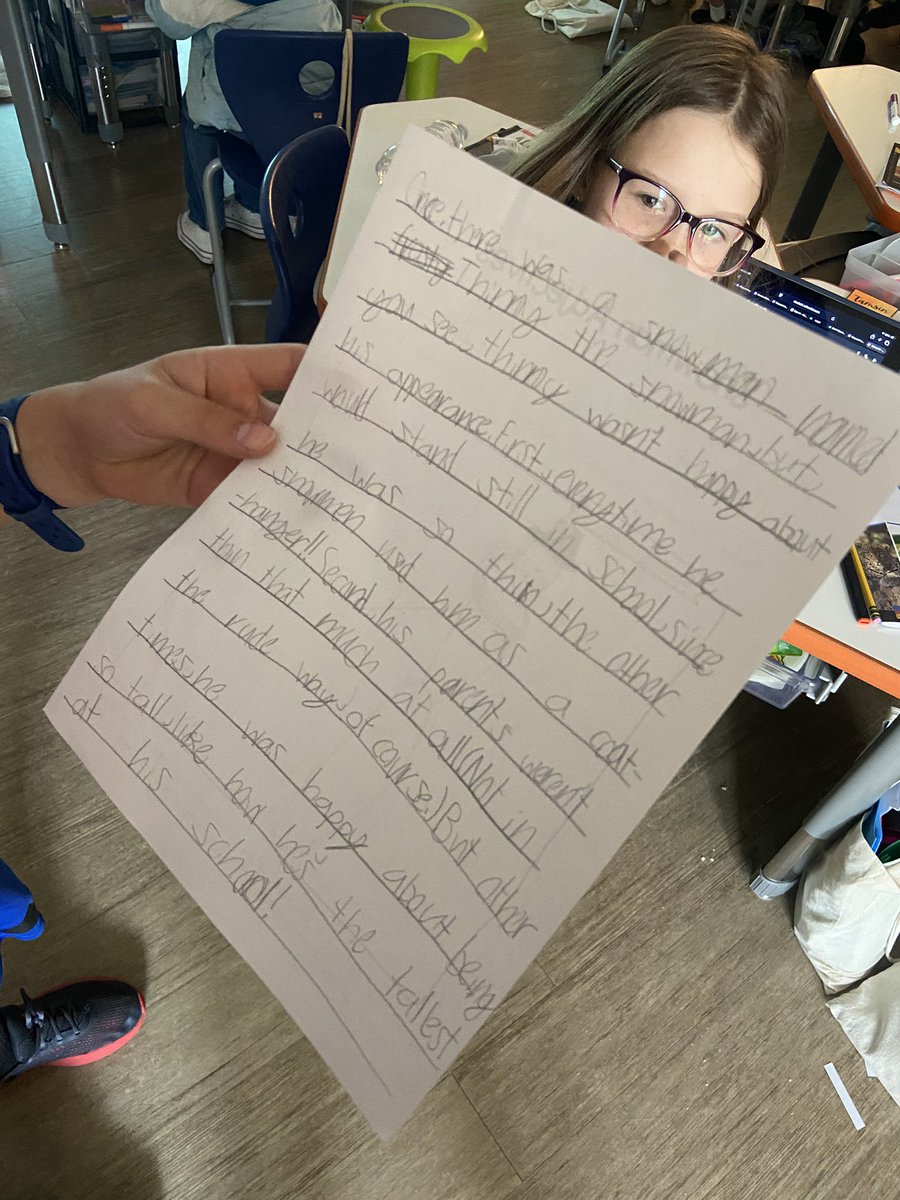 One, there was a snow man named
Thinny the snowman, but,
you see, thinny wasn't happy about
his appearance. First, everytime he
stand still in school, since
he was so thin, the other
snowmen usd him as a coat-
-hanger!! Second, his parents weren't
thin that much at all (Not in
the rude way, of course) But other
times, he was happy about being
so tall, like how he's the tallest
at his school!!
Tamsin